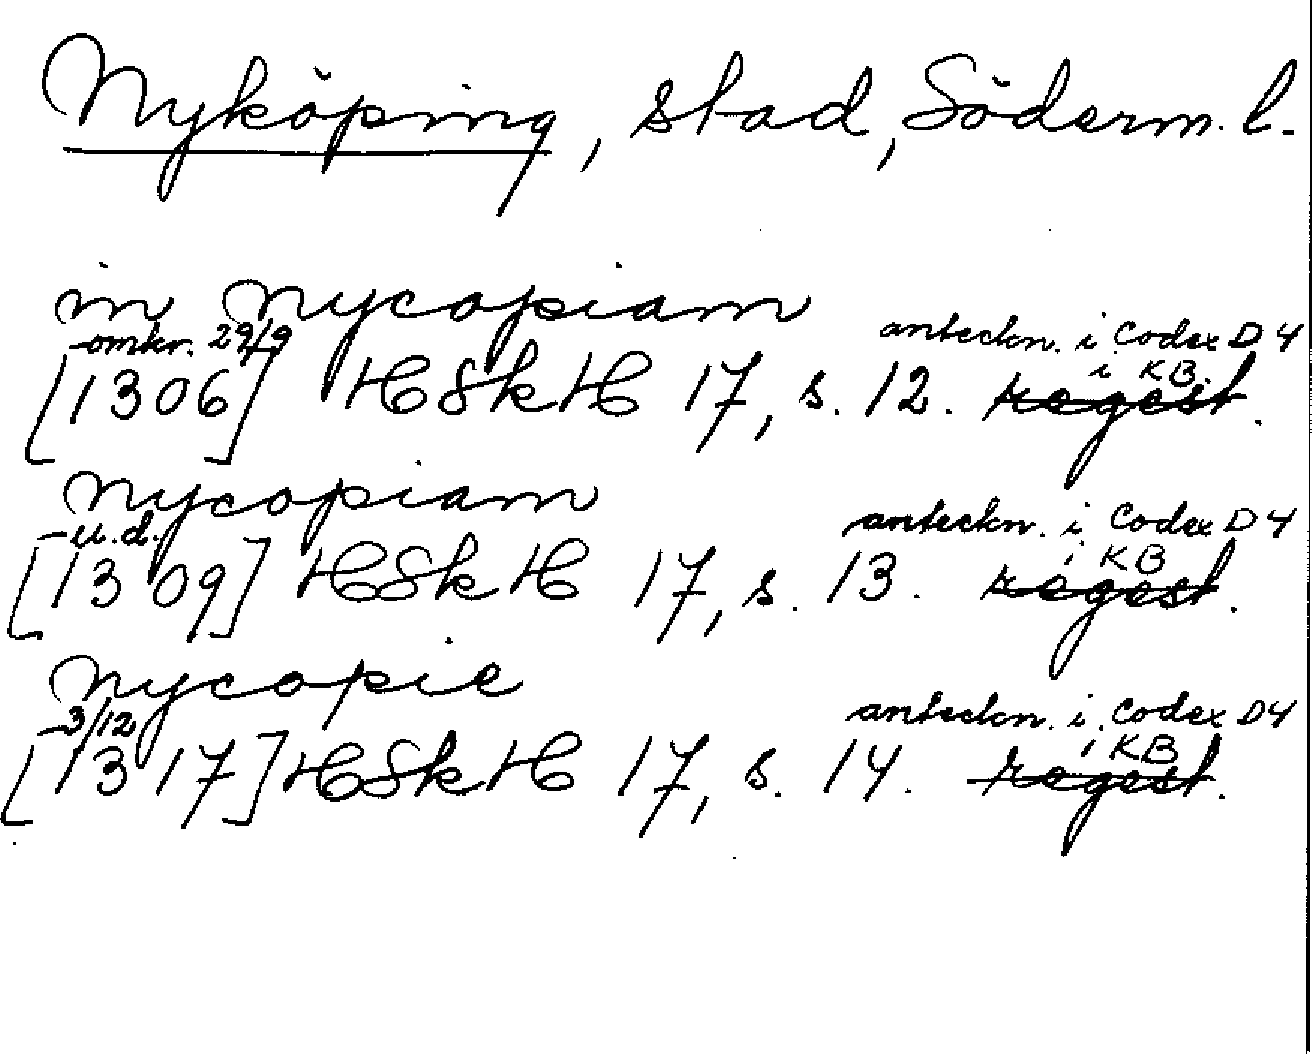 Nyköping, stad, Söderm. l.
in Nycopiam
omkr. 29/9 anteckn. i Codex D4
[1306] HSkH 17, s. 12. i KB. regest.
Nycopiam
u.d. anteckn. i Codex D4
[1309] HSkH 17, s. 13. i KB regest.
Nycopie
3/12 anteckn. i Codex D4
[1317] HSkH 17, s. 14. i KB regest.